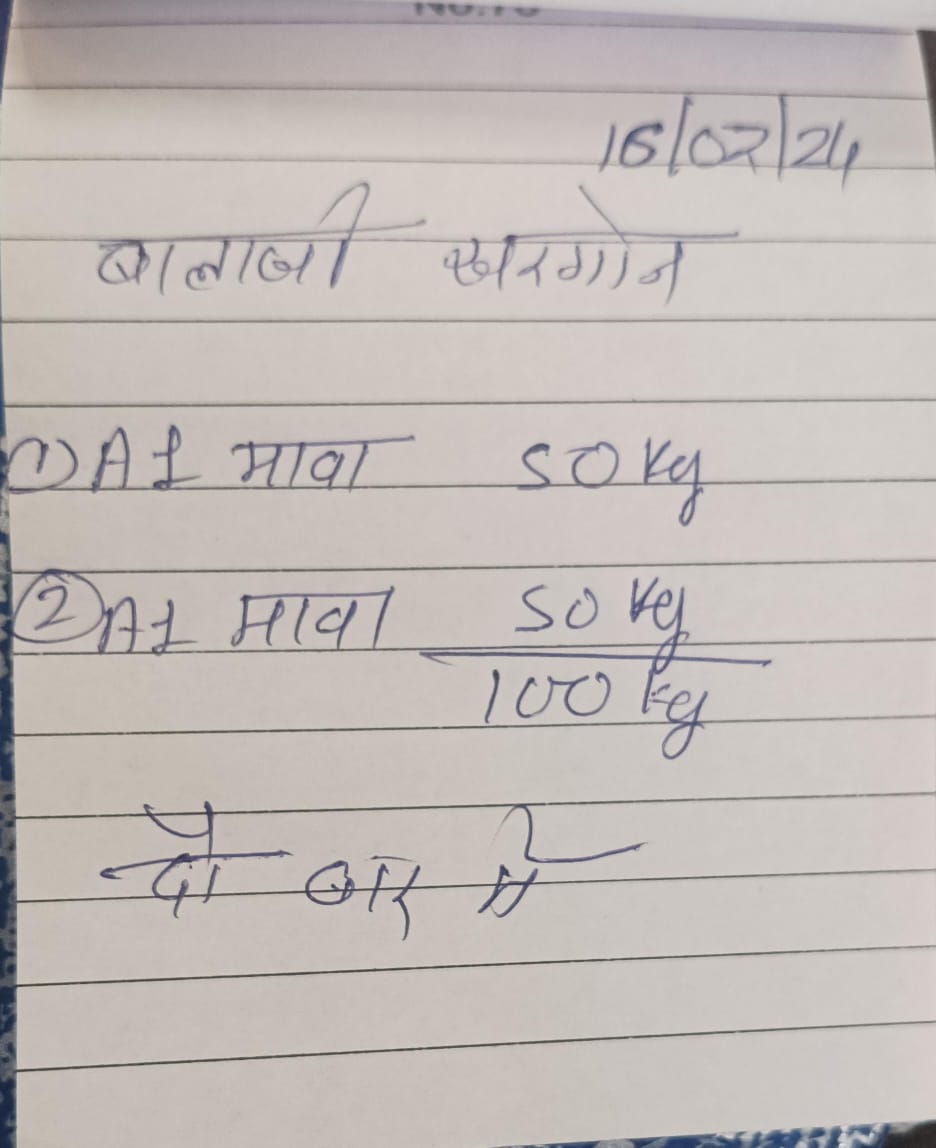 16/02/24
बालाजी खरगोन
1) A1 मावा 50 kg
2) A1 मावा 50 kg
100 kg
दो बार में